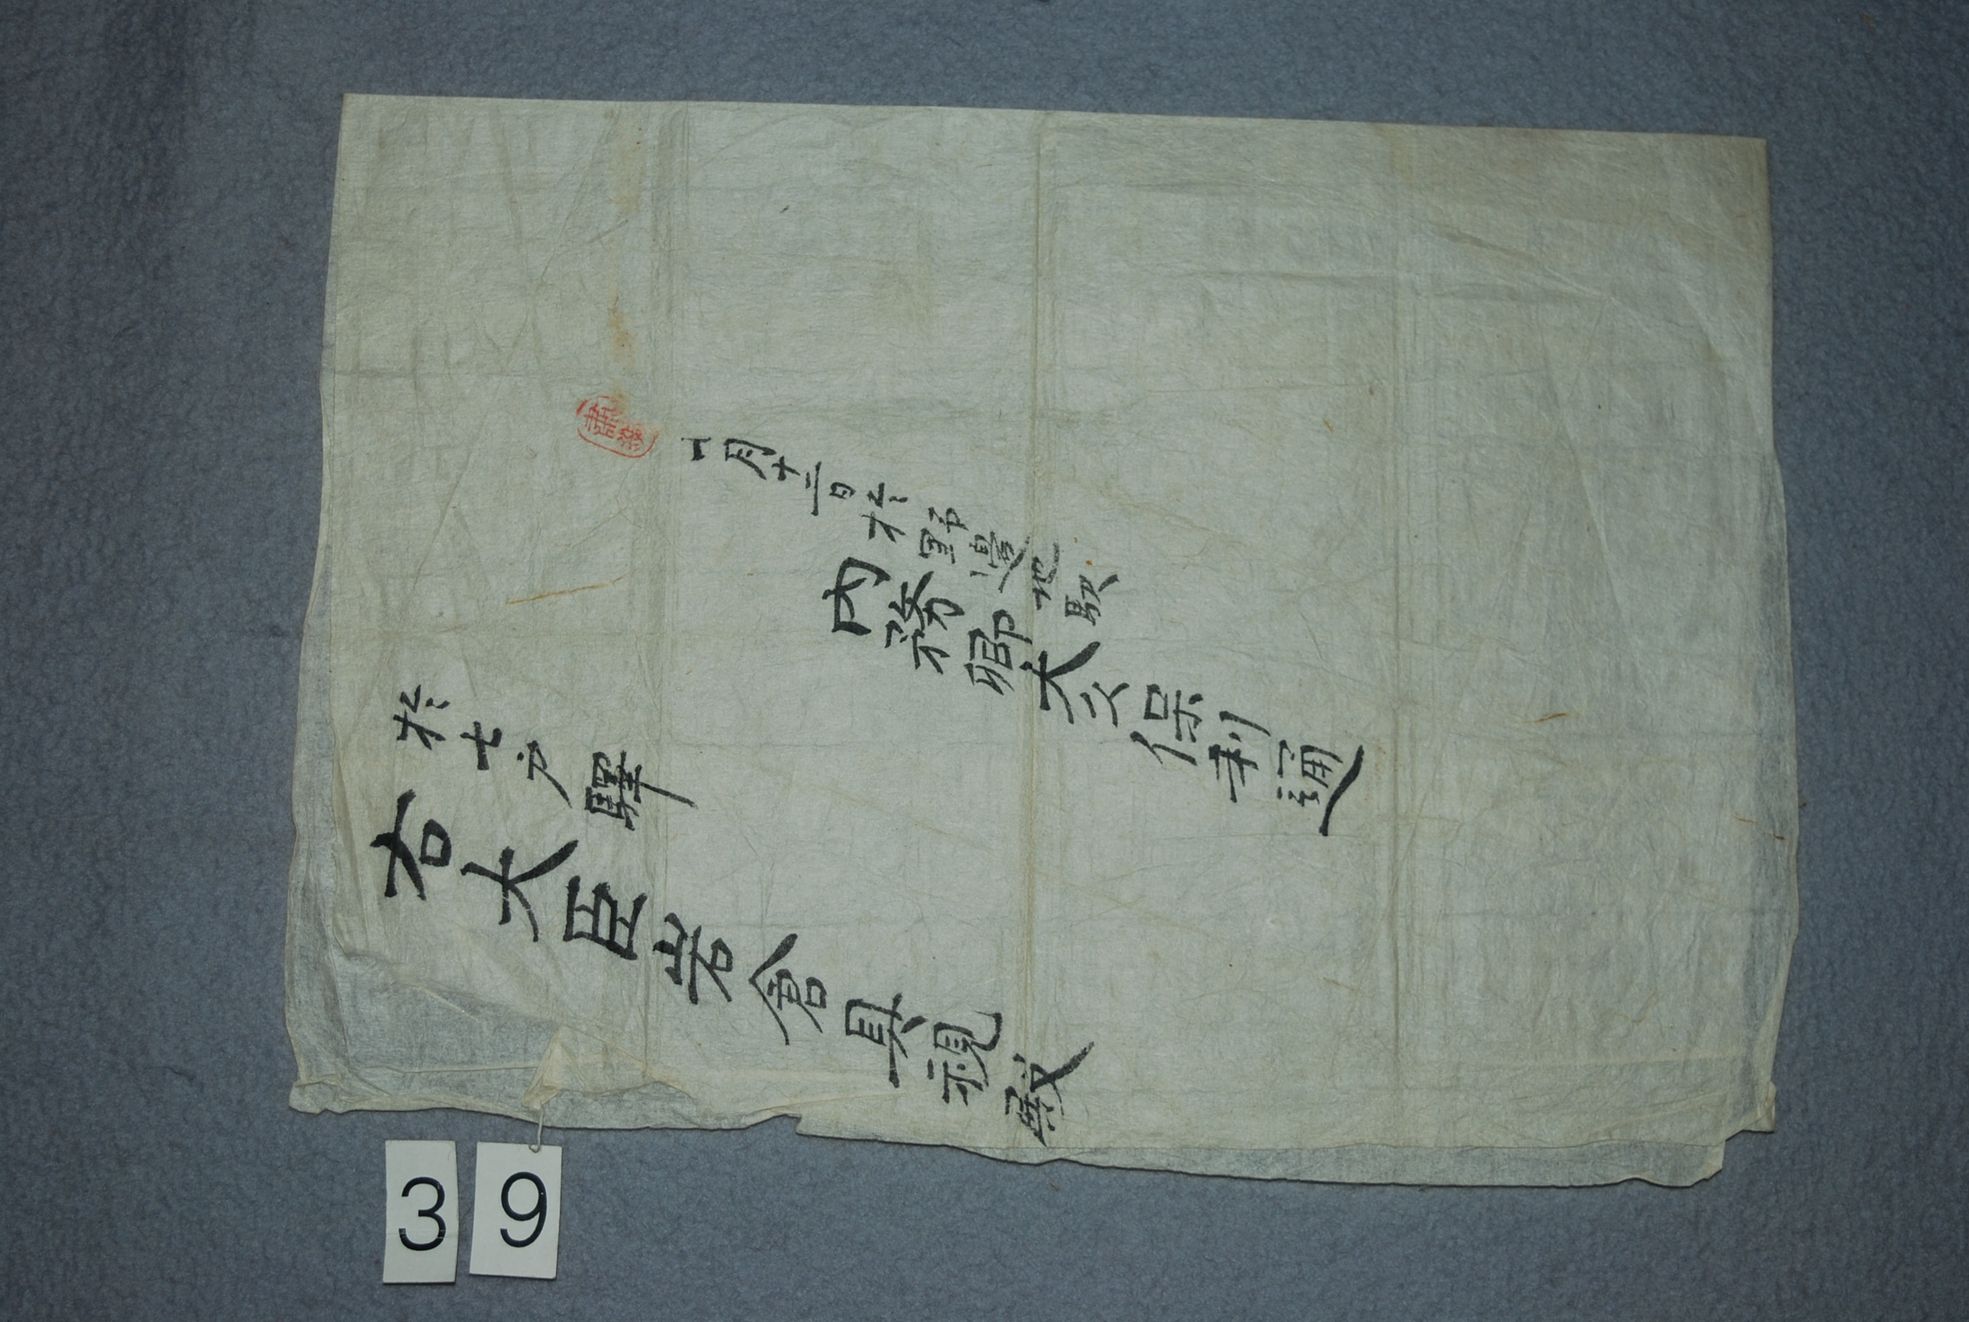 一月十二日於野邊地駅
内務卿大久保利通
於七戸驛
右大臣岩倉具視殿
39